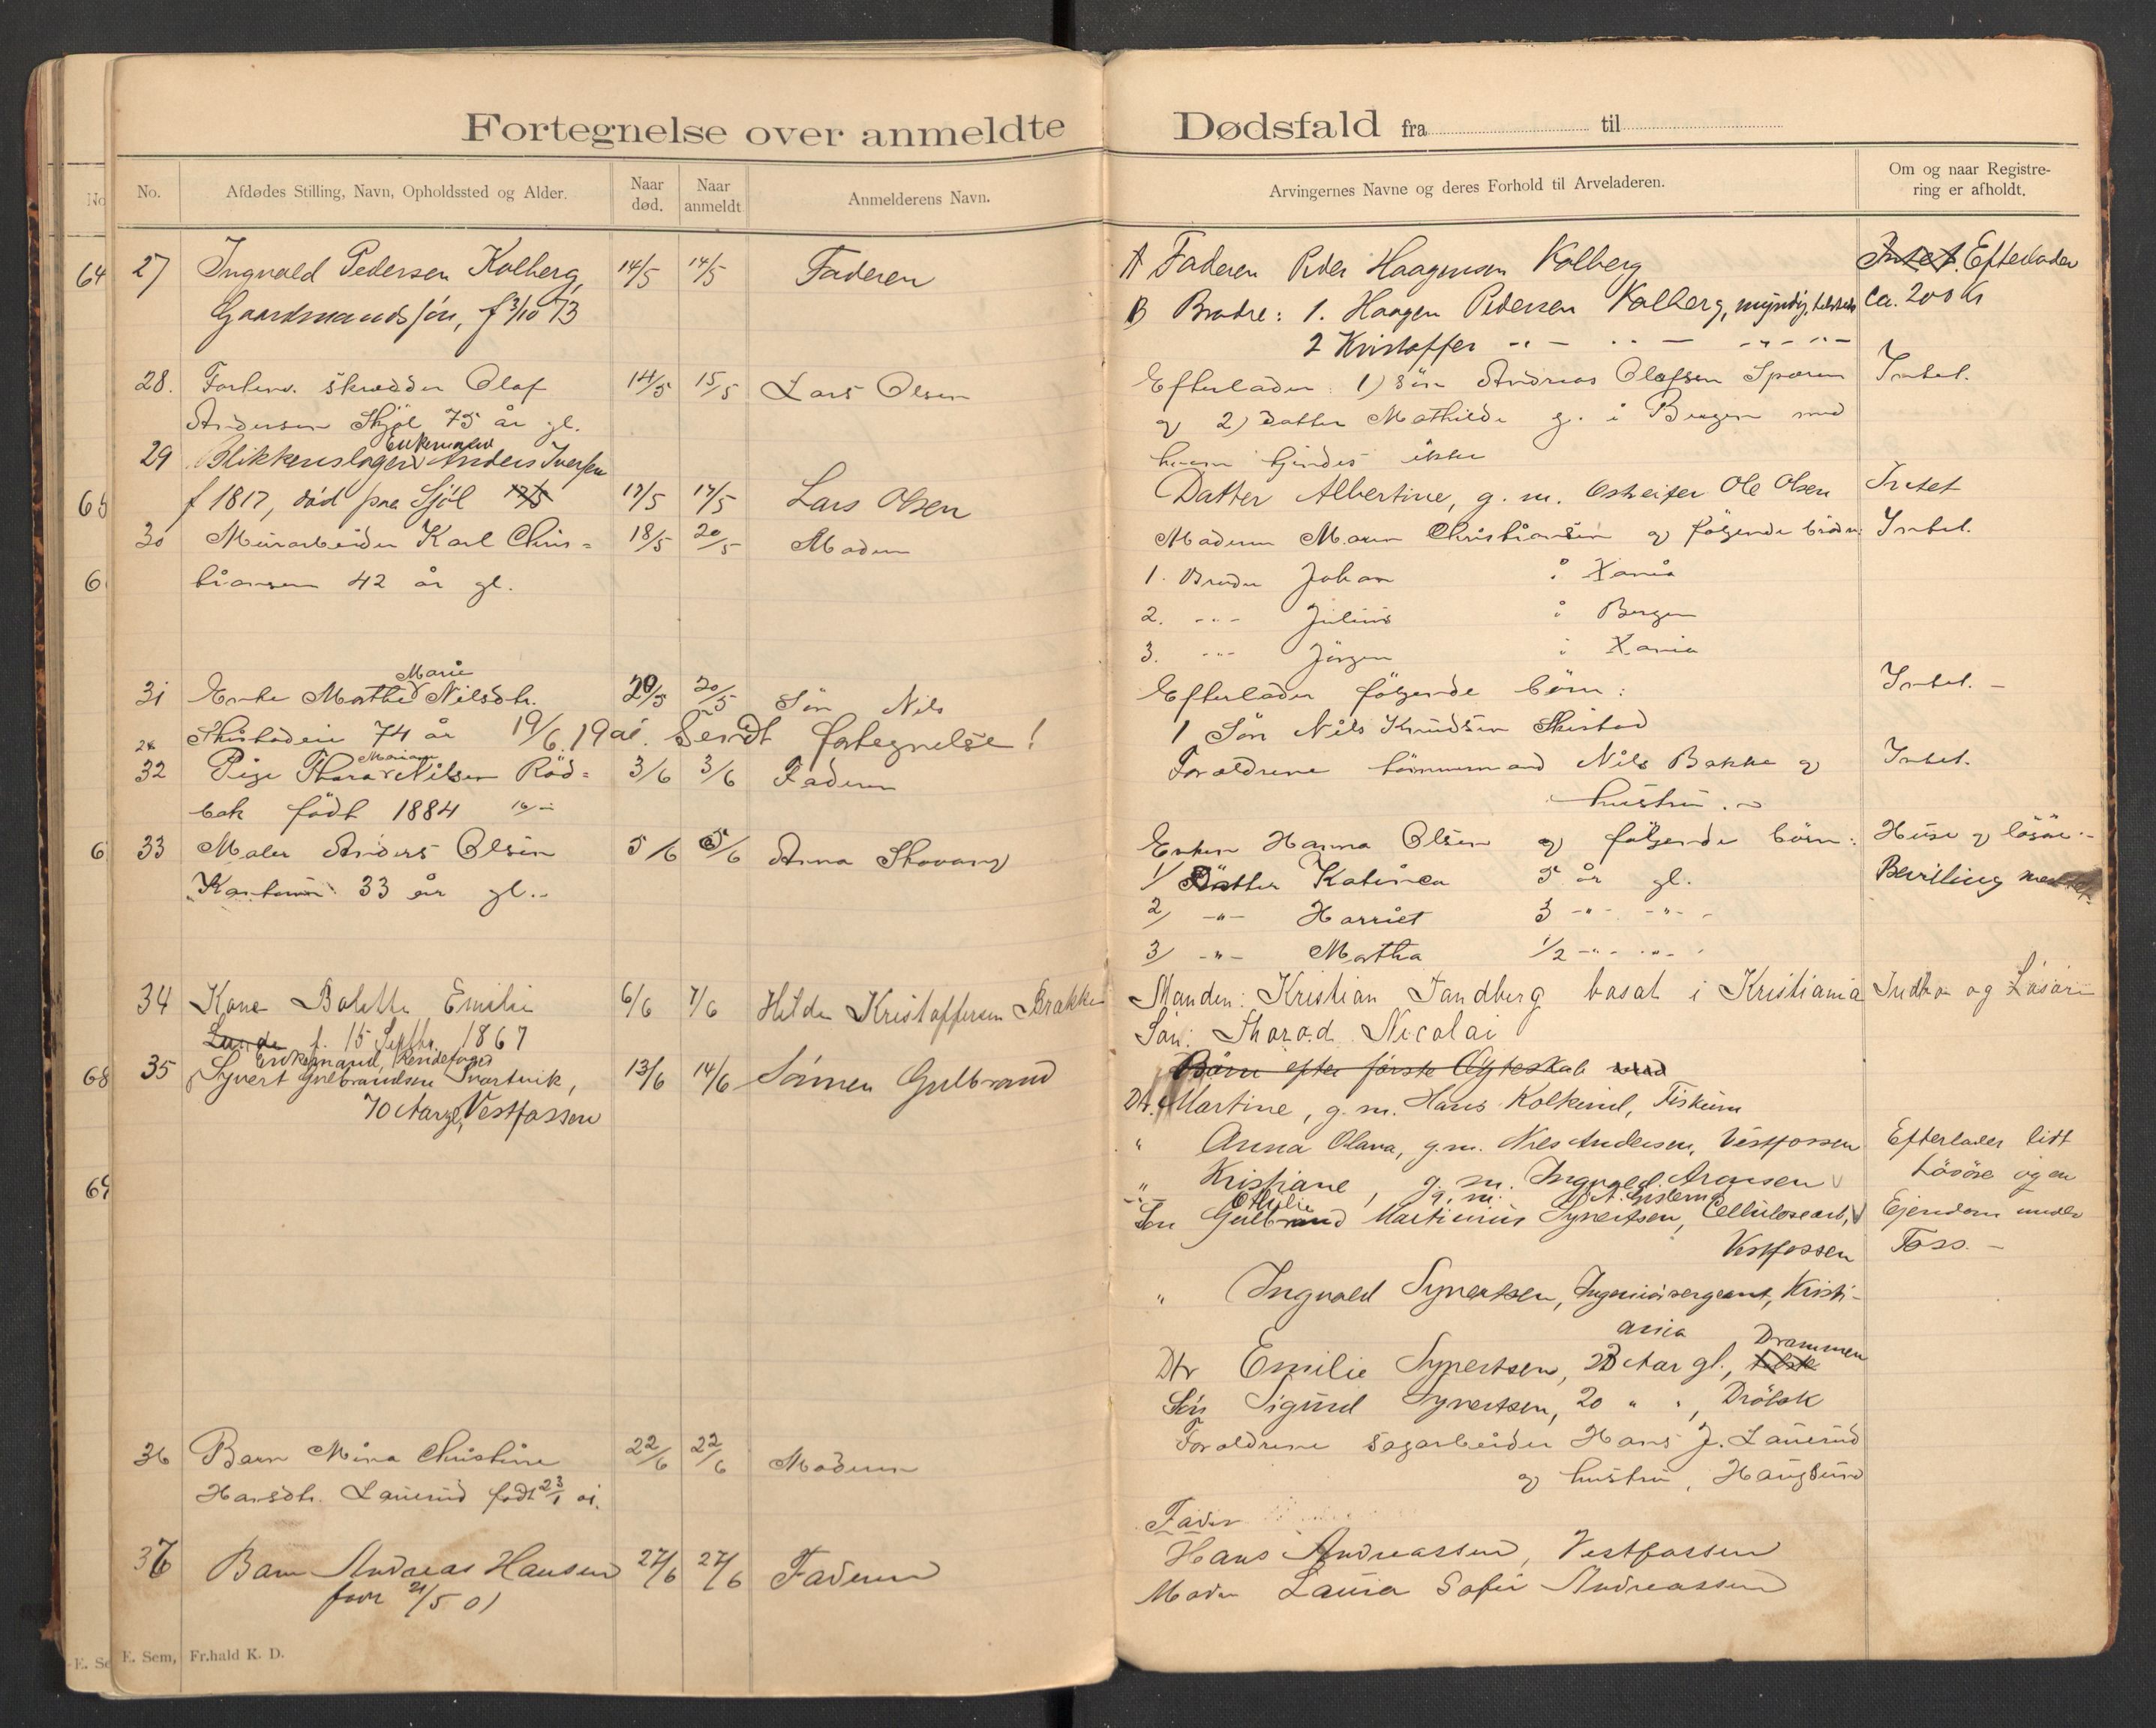 Fortegnelse over anmeldte Dødsfald fra til
No. Afdødes Stilling, Navn, Opholdssted og Alder. Naar død. Naar anmeldt Anmelderens Navn.
Arvingernes Navne og deres Forhold til Arveladeren. Om og naar Registrering er afholdt.
27 Ingvald Pedersen Kolberg, 14/5 14/5 Faderen
Gaardmandssön, f 3/10 73
28. Forhenv. skrædder Olaf 14/5 15/5 Lars Olsen
Andersen Skjöl 75 år gl.
Enkemand
29 Blikkenslager Anders Iversen
f 1817, död paa Sjöl 17/5 17/5 17/5 Lars Olsen
30 Murarbeider Karl Chris= 18/5 20/5 Moderen
tiansen 42 år gl.
Marie
31 Enke Mathea Nilsdtr. 20/5 20/5 Sön Nils
74 år 19/6. 19ai. Sendt fortegnelse!
Mariane
32 Pige Thora Nilsen Röd= 3/6 3/6 Faderen
bak födt 1884
33 Maler Anders Olsen 5/6 5/6 Anna Skovang
33 år gl.
34 Kone Bolette Emilie 6/6 7/6 Hilda Kristoffersen Brakke
Lunde f. 15 Septbr. 1867
Enkemand, Rendefoged
35 Syvert Gulbrandsen Svartvik, 13/6 14/6 Sönnen Gulbrand
70 Aar gl, Vestfossen
36 Barn Mina Christine 22/6 22/6 Moderen
Hansdtr. Lauerud födt 23/1 01.
37 Barn Andreas Hansen 27/6 27/6 Faderen
21/5 01
E. Sem, Fr.hald K. D.
A Faderen Peder Haagensen Kolberg Intet. Efterlader
B Brødre: 1. Haagen Pedersen Kolberg, myndig, Ca. 200 Kr
2 Kristoffer " - " - " - " -
Efterlader: 1) sön Andreas Olafsen Sparen Intet.
og 2) datter Mathilde g. i Bergen med
hvem kjendes ikke
Datter Albertine, g. m. Ole Olsen Intet
Moderen Maren Christiansen og følgende brödre: Intet.
1. Broder Johan i Xania
2. -"- Julius i Bergen
3. -"- Jörgen i Xania
Efterlader følgende börn: Intet. -
1 Sön Nils Knudsen Skistad
Forældrene Nils Bakke og Intet.
hustru. -
Enken Hanna Olsen og følgende börn: Huse og lösöre.-
1/ Datter Katinca 5 år gl. Bevilling
2/ -"- Harriet 3 -"- -"-
3/ -"- Martha 1/2 -"- -"-
Manden: Kristian Sandberg bosat i Kristiania Indbo og Lösöre
Sön: Thorod Nicolai
Börn efter förste Ægteskab med
Dtr. Martine, g. m. Hans Kolkind, Fiskum
" Anna Olava, g. m. Nils Andersen, Vestfossen Efterlader lidt
" Kristiane, g. m. Ingvald Aronsen Lösöre og en
-"- Othilie g. m.
Sön Gulbrand Martinius Syvertsen, Cellulosearb., Ejendom under
Vestfossen Foss. -
" Ingvald Syvertsen, Ingeniörsergeant, Kristi-
ania
Drammen
Dtr Emilie Syvertsen, 23 Aar gl.,
Sön Sigurd Syvertsen, 20 " ", Dröbak
Forældrene sagarbeider Hans J. Lauerud
og hustru, Haugsund
Fader
Hans Andreassen, Vestfossen
Moder Laura Sofie Andreassen
64
65
6
6
68
69